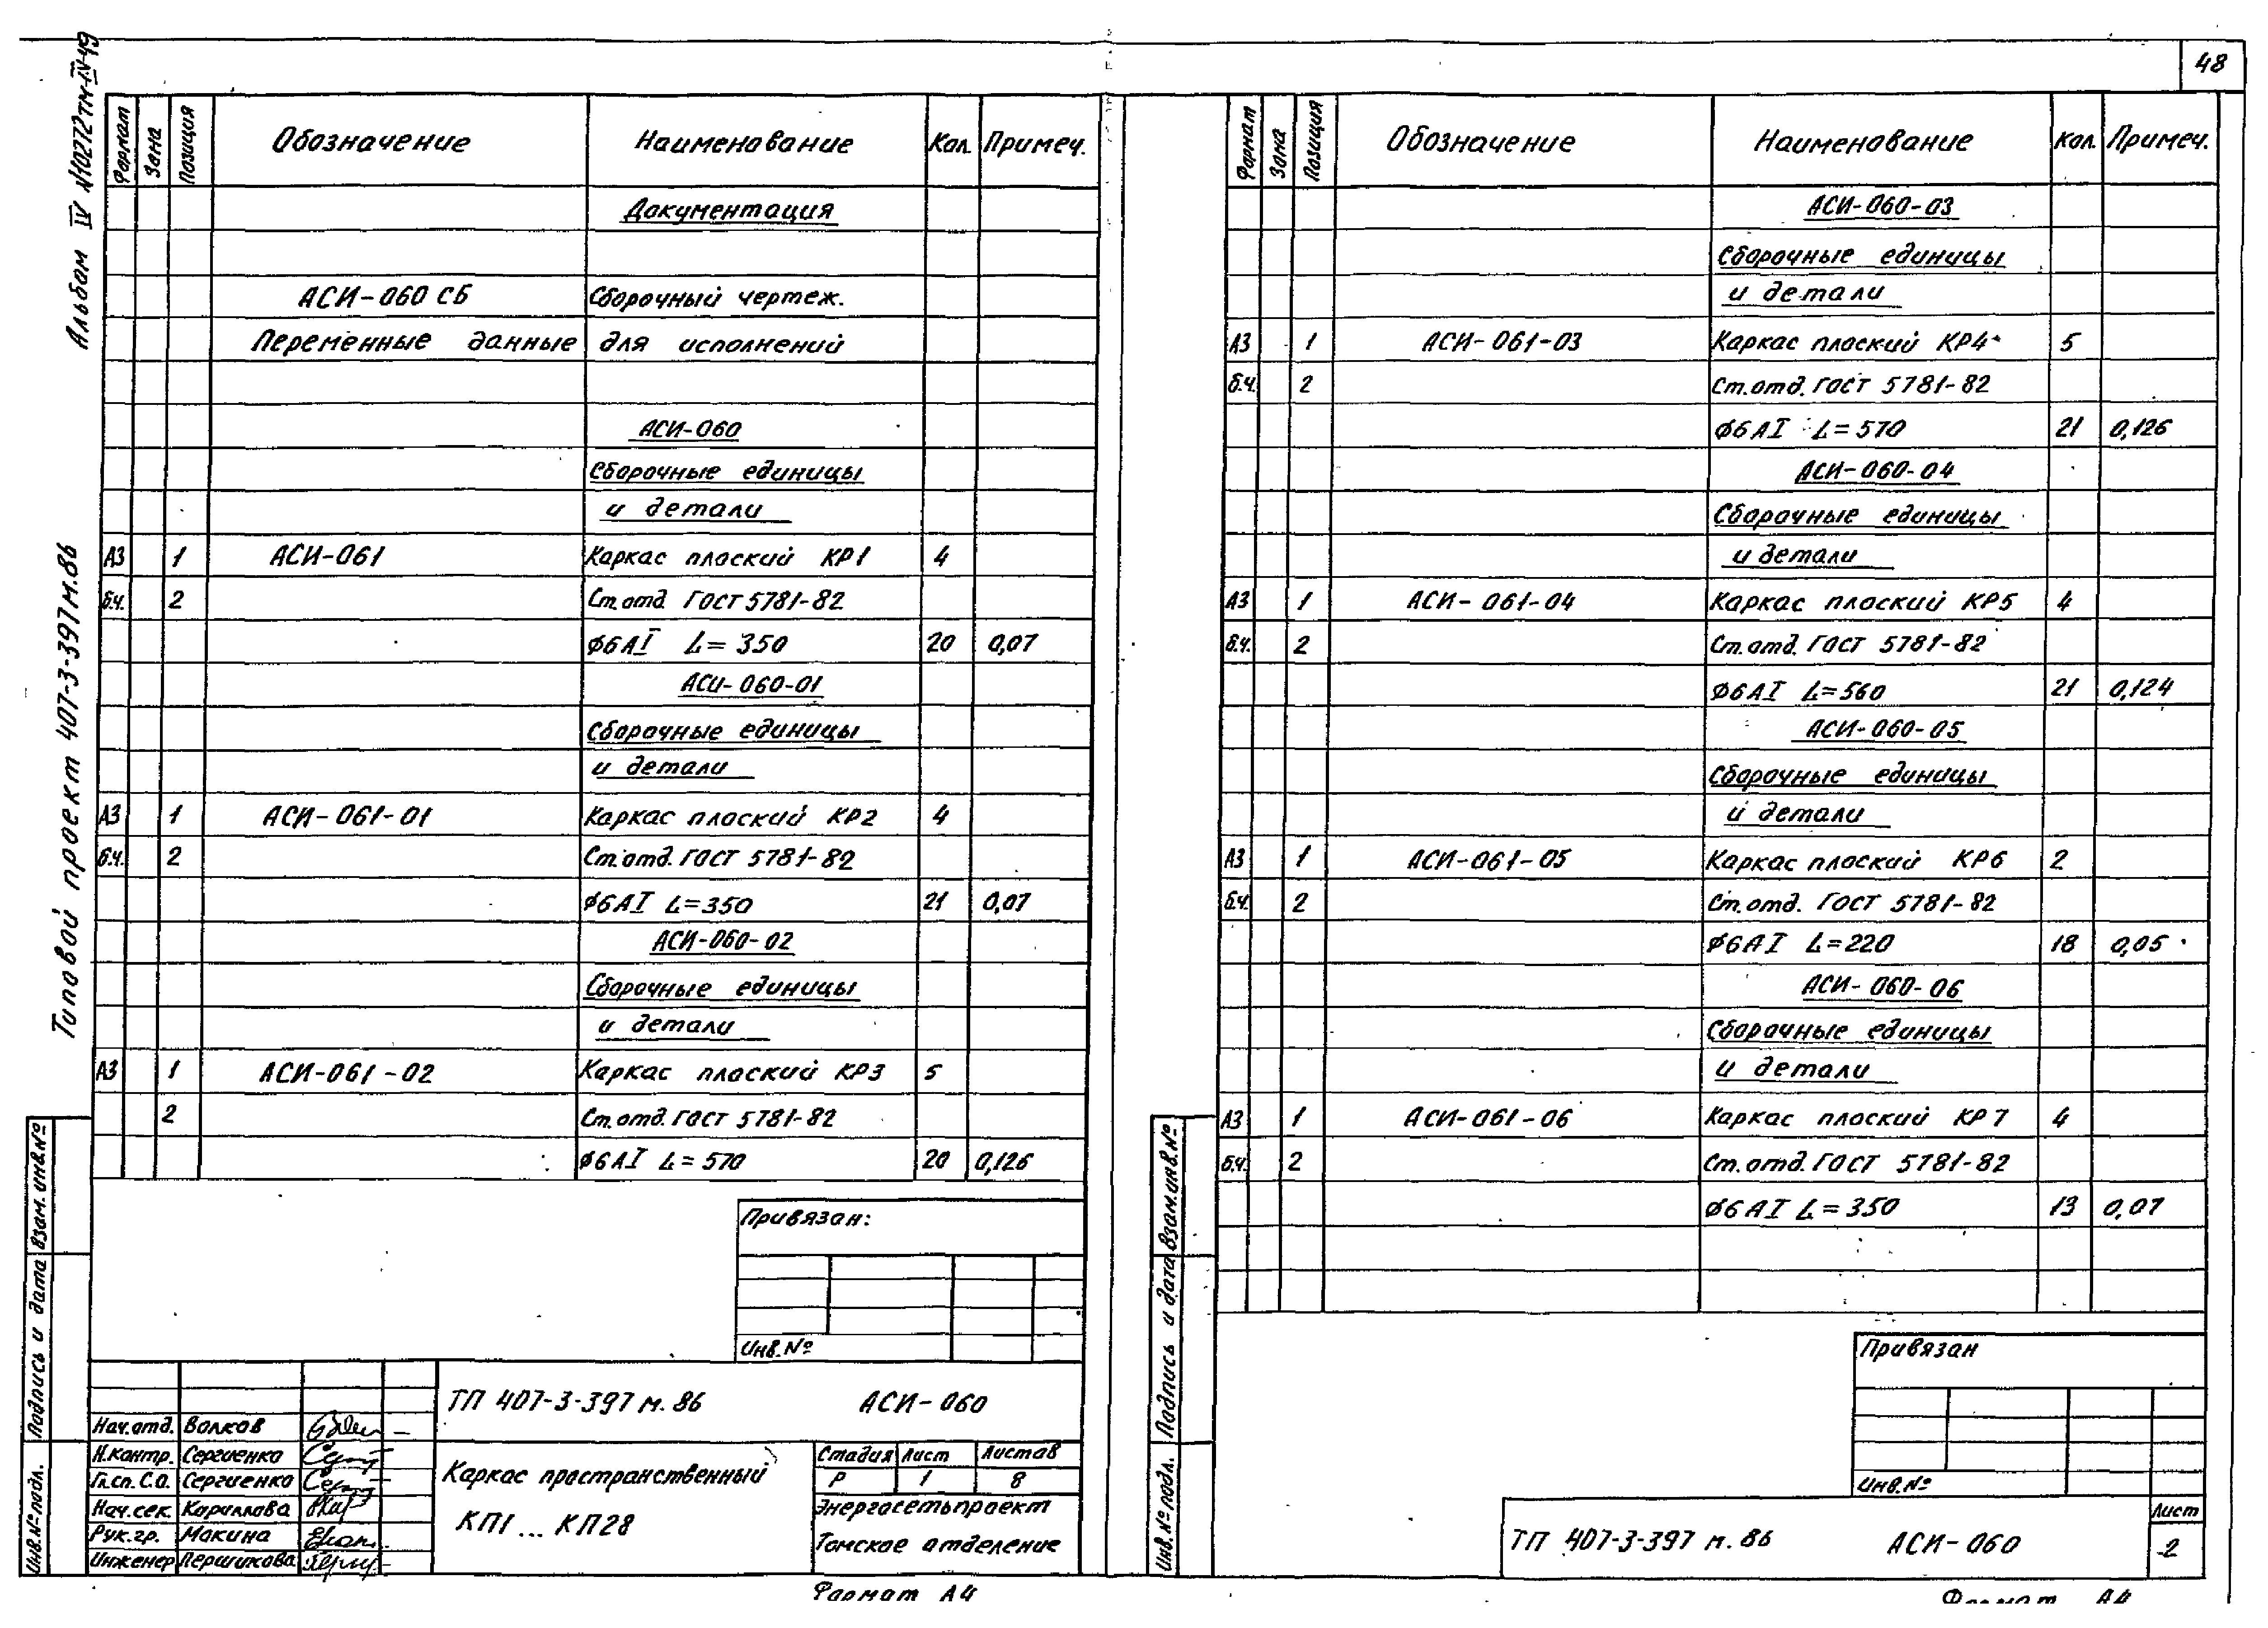 48
Альбом IV №10272тм-IV-49
Типовой проект 407-3-397м.86
Формат Зона Позиция Обозначение Наименование Кол. Примеч.
Документация
АСИ-060 СБ Сборочный чертеж.
Переменные данные для исполнений
АСИ-060
Сборочные единицы
и детали
А3 1 АСИ-061 Каркас плоский КР1 4
б.ч. 2 Ст.отд ГОСТ 5781-82
Ø6АI L=350 20 0,07
АСИ-060-01
Сборочные единицы
и детали
А3 1 АСИ-061-01 Каркас плоский КР2 4
б.ч. 2 Ст.отд. ГОСТ 5781-82
Ø6АI L=350 21 0,07
АСИ-060-02
Сборочные единицы
и детали
А3 1 АСИ-061-02 Каркас плоский КР3 5
2 Ст.отд. ГОСТ 5781-82
Ø6АI L=570 20 0,126
Привязан:
Инв.№
ТП 407-3-397 м.86 АСИ-060
Нач.отд. Волков
Н.контр. Сергиенко
Гл.сп.С.О. Сергиенко
Нач.сек. Кириллова
Рук.гр. Макина
Инженер Першикова
Каркас пространственный
КП1...КП28
Стадия Лист Листов
Р 1 8
Энергосетьпроект
Томское отделение
Формат А4
Взам.инв.№
Подпись и дата
Инв.№ подл.
Формат Зона Позиция Обозначение Наименование Кол. Примеч.
АСИ-060-03
Сборочные единицы
и детали
А3 1 АСИ-061-03 Каркас плоский КР4 5
б.ч. 2 Ст.отд. ГОСТ 5781-82
Ø6АI L=570 21 0,126
АСИ-060-04
Сборочные единицы
и детали
А3 1 АСИ-061-04 Каркас плоский КР5 4
б.ч. 2 Ст.отд. ГОСТ 5781-82
Ø6АI L=560 21 0,124
АСИ-060-05
Сборочные единицы
и детали
А3 1 АСИ-061-05 Каркас плоский КР6 2
б.ч. 2 Ст.отд. ГОСТ 5781-82
Ø6АI L=220 18 0,05
АСИ-060-06
Сборочные единицы
и детали
А3 1 АСИ-061-06 Каркас плоский КР7 4
б.ч. 2 Ст.отд. ГОСТ 5781-82
Ø6АI L=350 13 0,07
Привязан
Инв.№
ТП 407-3-397 м.86 АСИ-060
Лист
2
Формат А4
Взам.инв.№
Подпись и дата
Инв.№ подл.